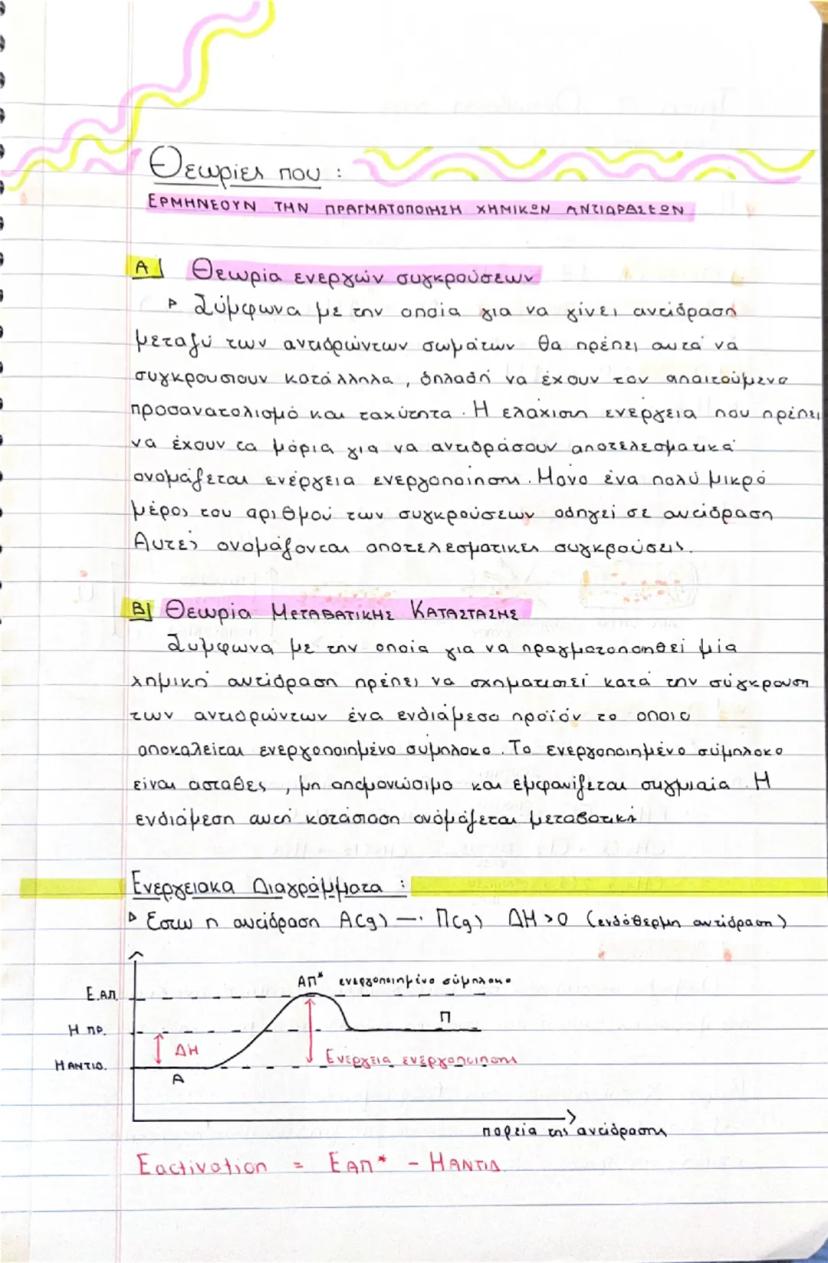 Θεωρίες που :
ΕΡΜΗΝΕΟΥΝ ΤΗΝ ΠΡΑΓΜΑΤΟΠΟΙΗΣΗ ΧΗΜΙΚΩΝ ΑΝΤΙΔΡΑΣΕΩΝ
Α) Θεωρία ενεργών συγκρούσεων
Σύμφωνα με την οποία για να γίνει αντίδραση
μεταξύ των αντιδρώντων σωμάτων θα πρέπει αυτά να
συγκρουστουν κατάλληλα , δηλαδή να έχουν τον απαιτούμενο
προσανατολισμό και ταχύτητα. Η ελάχιστη ενέργεια που πρέπει
να έχουν τα μόρια για να αντιδράσουν αποτελεσματικά
ονομάζεται ενέργεια ενεργοποίηση. Μόνο ένα πολύ μικρό
μέρος του αριθμού των συγκρούσεων οδηγεί σε αντίδραση
Αυτές ονομάζονται αποτελεσματικες συγκρούσεις.
Β) Θεωρία ΜΕΤΑΒΑΤΙΚΗΣ ΚΑΤΑΣΤΑΣΗΣ
Σύμφωνα με την οποία για να πραγματοποιηθεί μία
χημική αντίδραση πρέπει να σχηματιστεί κατά την σύγκρουση
των αντιδρώντων ένα ενδιάμεσο προϊόν το οποιο
αποκαλείται ενεργοποιημένο σύμπλοκο. Το ενεργοποιημένο σύμπλοκο
είναι ασταθες , μη απομονώσιμο και εμφανίζεται στιγμιαία. Η
ενδιάμεση αυτή κατάσταση ονομάζεται μεταβατική
Ενεργειακα Διαγράμματα :
Εστω η αντίδραση Α(g) → Π(g) ΔΗ > 0 (ενδόθερμη αντίδραση)
ΑΠ* ενεργοποιημένο σύμπλοκο
Ε.ΑΠ.
Π
Η ΠΡ.
ΔΗ
Ενέργεια ενεργοποίησης
Η ΑΝΤΙΔ.
Α
πορεία της αντίδρασης
Eactivation = EΑΠ* - ΗΑΝΤΙΔ.